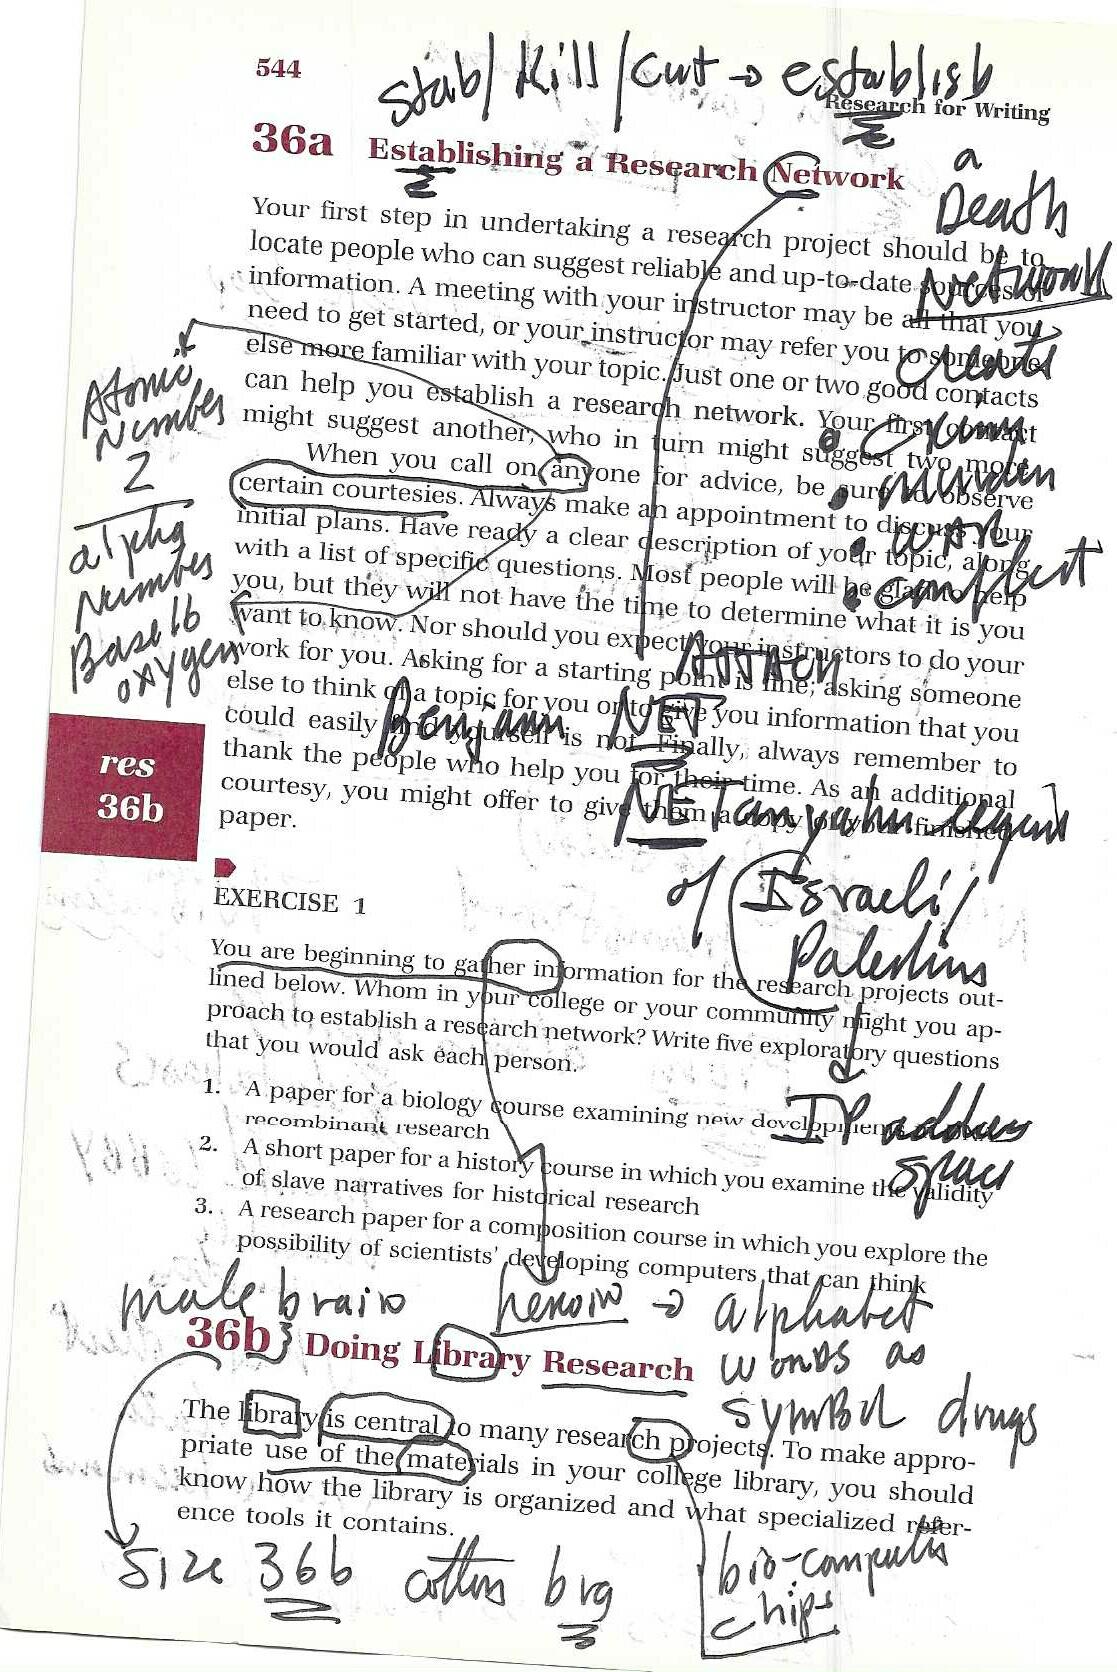 544
stab/Kill/Cut → establish
Research for Writing
36a Establishing a Research Network
a
Death
Network
Your first step in undertaking a research project should be to
locate people who can suggest reliable and up-to-date sources of
information. A meeting with your instructor may be all that you
need to get started, or your instructor may refer you to someone
else more familiar with your topic. Just one or two good contacts
can help you establish a research network. Your first contact
might suggest another, who in turn might suggest two more.
creats
• crime
• murder
• war
• conflict
Atomic
Numbers
Z
alpha
Numbers
Base 16
oxygen
When you call on anyone for advice, be sure to observe
certain courtesies. Always make an appointment to discuss your
initial plans. Have ready a clear description of your topic, along
with a list of specific questions. Most people will be glad to help
you, but they will not have the time to determine what it is you
want to know. Nor should you expect your instructors to do your
work for you. Asking for a starting point is fine; asking someone
else to think of a topic for you or to give you information that you
could easily find yourself is not. Finally, always remember to
thank the people who help you for their time. As an additional
courtesy, you might offer to give them a copy of your finished
paper.
Attach
Benjamin NET
NETanyahu agent
of Israeli/
Palestins
IP address
space
res
36b
EXERCISE 1
You are beginning to gather information for the research projects out-
lined below. Whom in your college or your community might you ap-
proach to establish a research network? Write five exploratory questions
that you would ask each person.
1. A paper for a biology course examining new developments
recombinant research
2. A short paper for a history course in which you examine the validity
of slave narratives for historical research
3. A research paper for a composition course in which you explore the
possibility of scientists' developing computers that can think
male brain heroin → alphabet
words as
symbol drugs
36b Doing Library Research
The library is central to many research projects. To make appro-
priate use of the materials in your college library, you should
know how the library is organized and what specialized refer-
ence tools it contains.
size 36b bra
bio-computer
chips